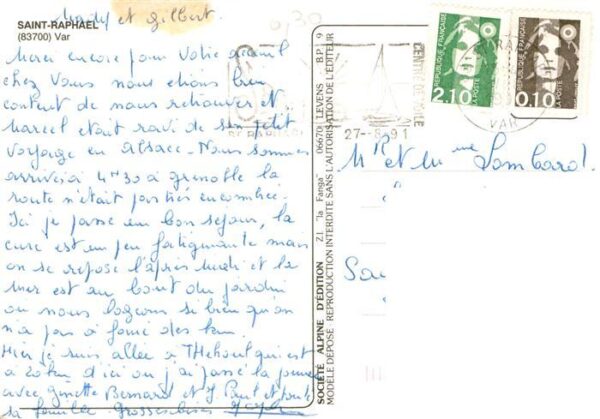 Mady et Gilbert
SAINT-RAPHAËL
(83700) Var
0,30
Merci encore pour votre accueil
chez vous nous etions bien
content de nous retrouver et
Marcel etait ravi de son petit
voyage en Alsace - Nous sommes
arrivés à 4h30 à grenoble la
route n'était pas très encombrée.
Ici je passe un bon sejour, la
cure est un peu fatiguante mais
on se repose l'après midi et la
mer est au bout du jardin
ou nous logeons si bien qu'on
n'a pas à faire des km.
Hier je suis allée à Théhoul qui est
à 20 km d'ici ou j'ai passé la journée
avec ginette Bernard et J Paul et toute
la famille Grosses bises
SOCIÉTÉ ALPINE D'ÉDITION Z.I. "la Fanga" 06670 LEVENS B.P. 9
MODÈLE DÉPOSÉ - REPRODUCTION INTERDITE SANS L'AUTORISATION DE L'ÉDITEUR
CENTRE DE VOILE
27-8-91
VAR
REPUBLIQUE FRANÇAISE
LA POSTE
2,10
REPUBLIQUE FRANÇAISE
LA POSTE
0,10
Mr et Mme Lombard.